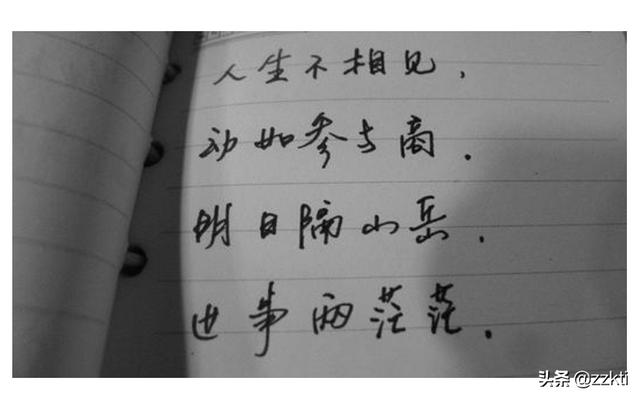 人生不相见，
动如参与商．
明日隔山岳．
世事两茫茫．
头条 @zzkti